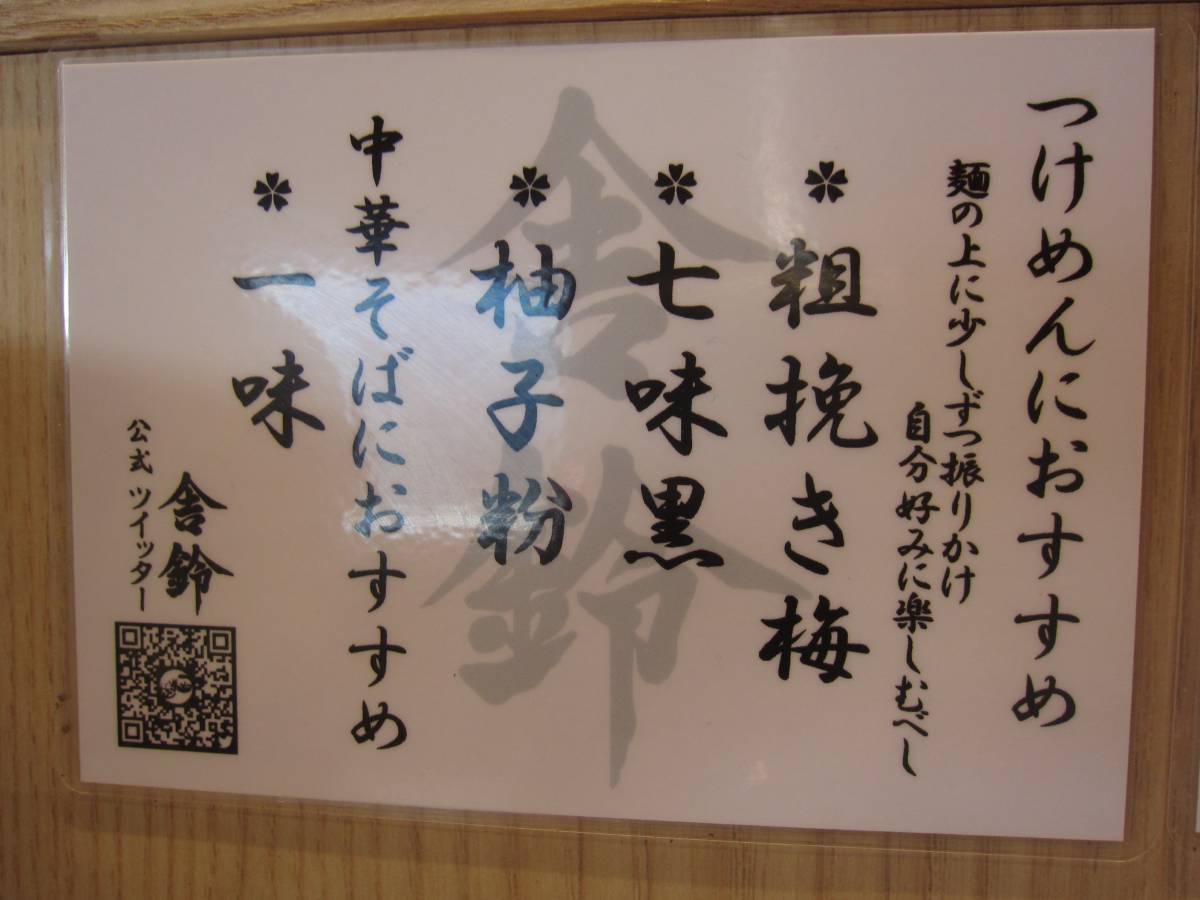 つけめんにおすすめ
麺の上に少しずつ振りかけ
自分好みに楽しむべし
粗挽き梅
七味黒
柚子粉
中華そばにおすすめ
一味
舎鈴
公式ツイッター
舎鈴